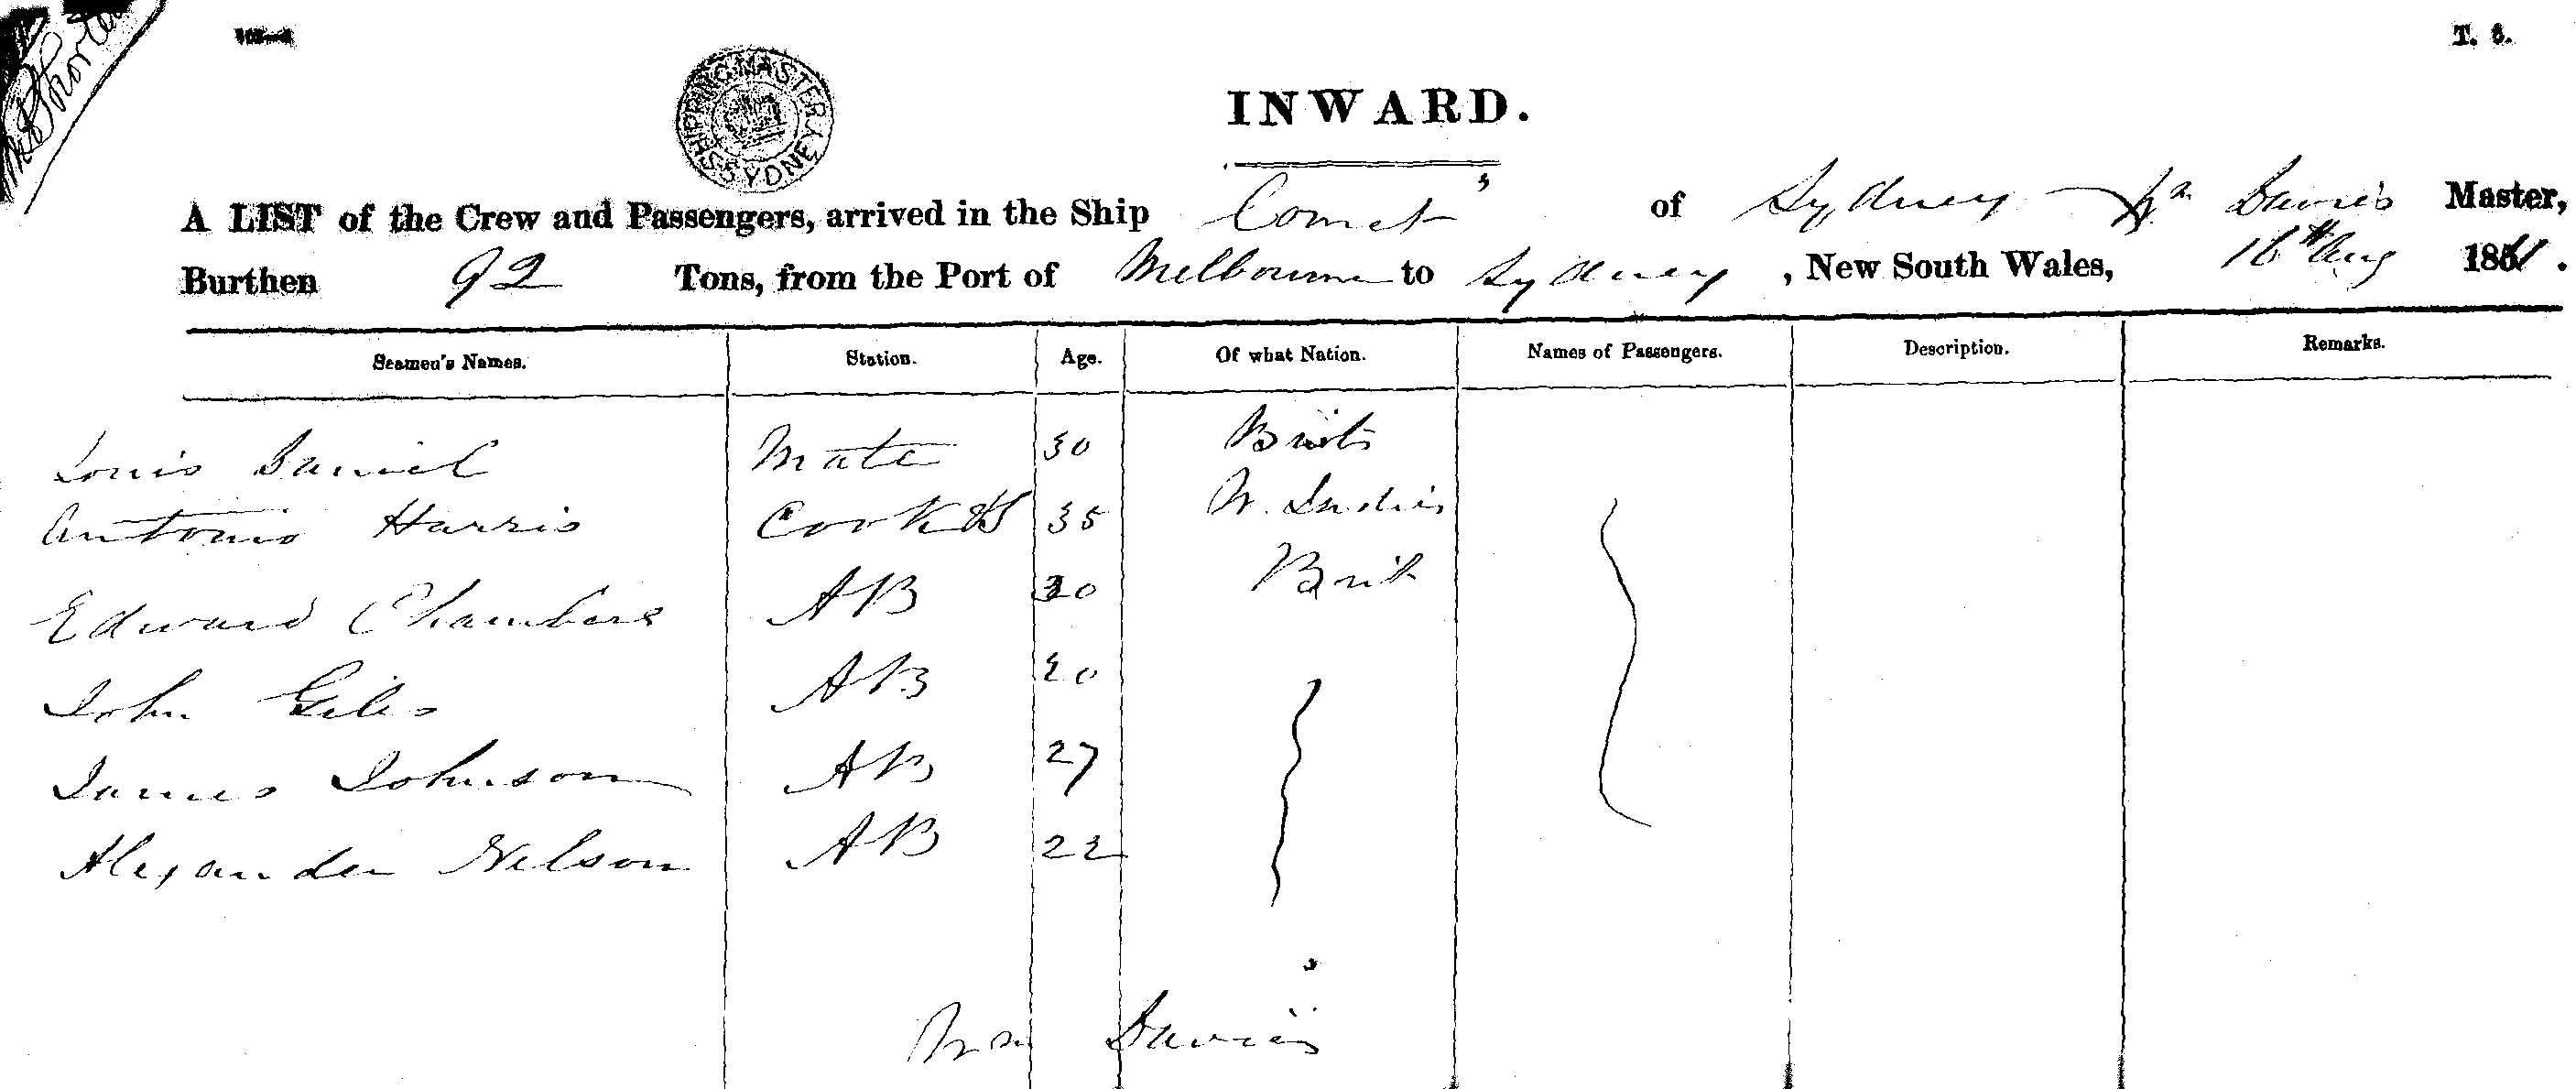 T. 5.
SHIPPING MASTER SYDNEY
INWARD.
A LIST of the Crew and Passengers, arrived in the Ship "Comet" of Sydney Wm Davies Master,
Burthen 92 Tons, from the Port of Melbourne to Sydney, New South Wales, 16th Aug 1861.
Seamen's Names. Station. Age. Of what Nation. Names of Passengers. Description. Remarks.
Louis Daniel Mate 30 British
Antonio Harris Cook & S 35 W. Indies
Edward Chambers AB 30 Brit
John Giles AB 20
James Johnson AB 27
Alexander Nelson AB 22
Wm Davies